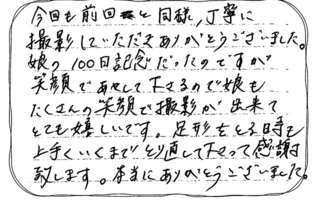 今回も前回と同様、丁寧に
撮影していただきありがとうございました。
娘の100日記念だったのですが
笑顔であやして下さるので娘も
たくさんの笑顔で撮影が出来て
とても嬉しいです。足形をとる時も
上手くいくまでとり直して下さって感謝
致します。本当にありがとうございました。